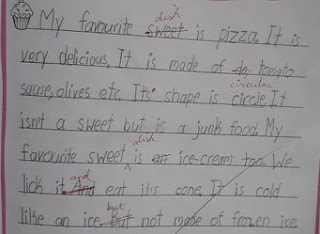 dish
My favourite sweet is pizza. It is
very delicious. It is made of do, tomato
circular
sause, olives etc. It's shape is circle. It
isn't a sweet but is a junk food. My
dish
favourite sweet is an ice-cream too. We
and
lick it. And eat it's cone. It is cold
but
like an ice. But not made of frozen ice.